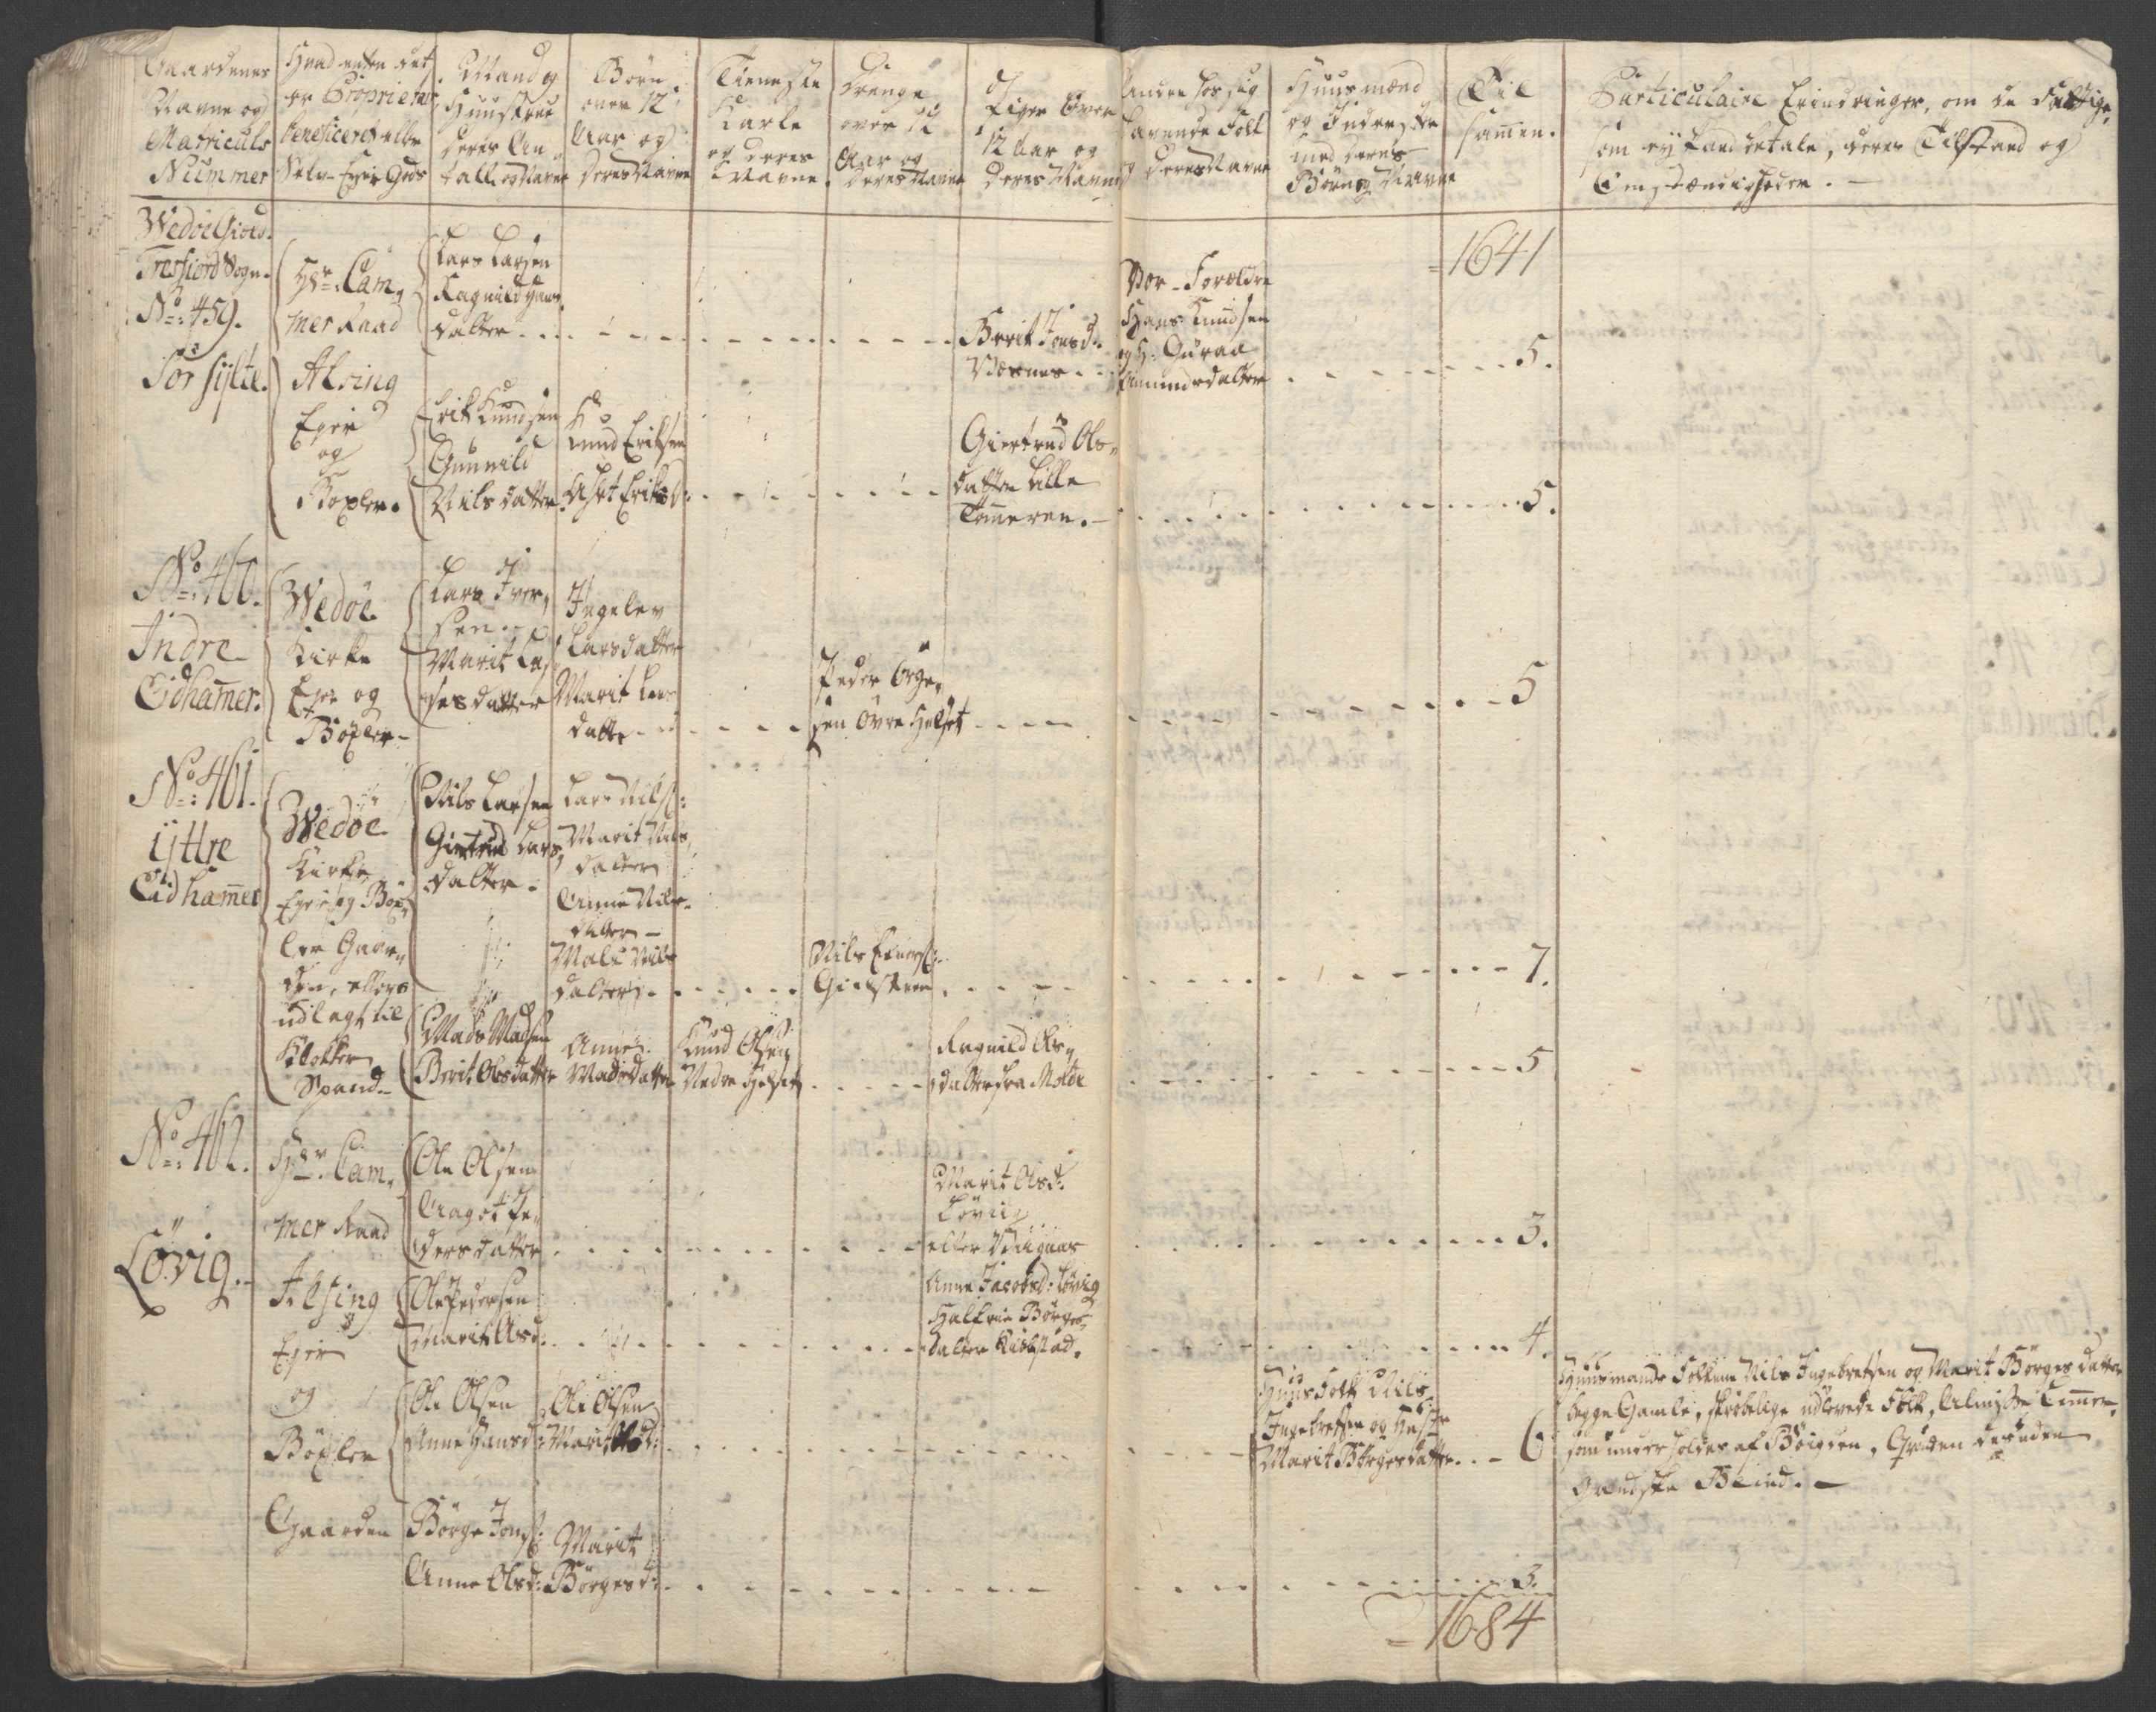 Gaardenes
Navne og
Matriculs
Nummer
Hvad enten det
er Proprietair
beneficeret eller
Selv-Ejer Gods
Mand og
Hunstrue
deres An
tall og Navne
Børn
over 12
Aar og
deres Navne
Tieneste
Karle
og deres
Navne.
Drenge
over 12
Aar og
deres Navne
Piger over
12 Aar og
deres Navne
Andre hos sig
havende Folk
og deres Navne
Huusmænd
og Inderster
med deres
Børn og Navne
Til
sammen.
Particulaire Erindringer, om de Fattige,
som ej kand betale, deres Tilstand og
Omstændigheder. –
Tresfiord Sogn.
No: 459.
Sør Sylte.
Hr: Cam,
mer Raad
Alsing
Ejer
og
Boxler.
Lars Larsen
Ragnild Hans
datter
Berit Jonsd:
Værnes
Vær-Forældre
Hans Knudsen
og H: Guraa
Amundsdatter
=1641
5.
Erik Knudsen
Gunnild
Nilsdatter
Knud Eriksen
Eriksd:
Giertrud Ols,
datter Lille
Tomeren. –
5.
No: 460.
Indre
Eidhamer.
Wedøe
Kirke
Ejer og
Boxler –
Lars Iver,
sen
Marit Las
sesdatter
Ingelev
Larsdatter
Marit Lars
datter
PederØrge,
sen Øvre Helset
5
No: 461.
Ÿttre
Eidhamer
Wedøe
Kirke
Ejer og Box
ler Gaar,
den, ellers
udlagt til
Klokker
Nils Larsen
Giertrud Lars
datter.
Lars Nils:
Marit Nils,
datter
Anne Nils,
datter –
Mali Nils
datter
Nils
7.
Mads Madsen
Berit Olsdatter
Anne
Madsdatter
Knud Olsen
Nedre Helset
Ragnild Ols,
datter fra Molde
5
No: 462.
Løvig.
Hr: Cam,
mer Raad
Alsing
Ejer
og
Boxler
Gaarden
Ole Olsen
Aagot Pe,
dersdatter
Marit Olsd:
Løvig
3.
Ole Pedersen
Marit Olsd:
Anne Jacobsd: Løvig
Børges,
datter
4.
Ole Olsen
Anne Hansd:
Ole Olsen
Marit Olsd:
Huusfolk Nils
Ingebretsen og Hustr
Marit Børgesdatter
6
Huusmands Folkene Nils Ingebretsen og Marit Børgesdatter
begge Gamle, skrøbelige udlevede Folk, Almisse Lemer,
som underholdes af Bøigden, Qvinden desuden
Gandske Blind. –
Børge Jons:
Anne Olsd:
Marit
Børgesd:
3.
=1684